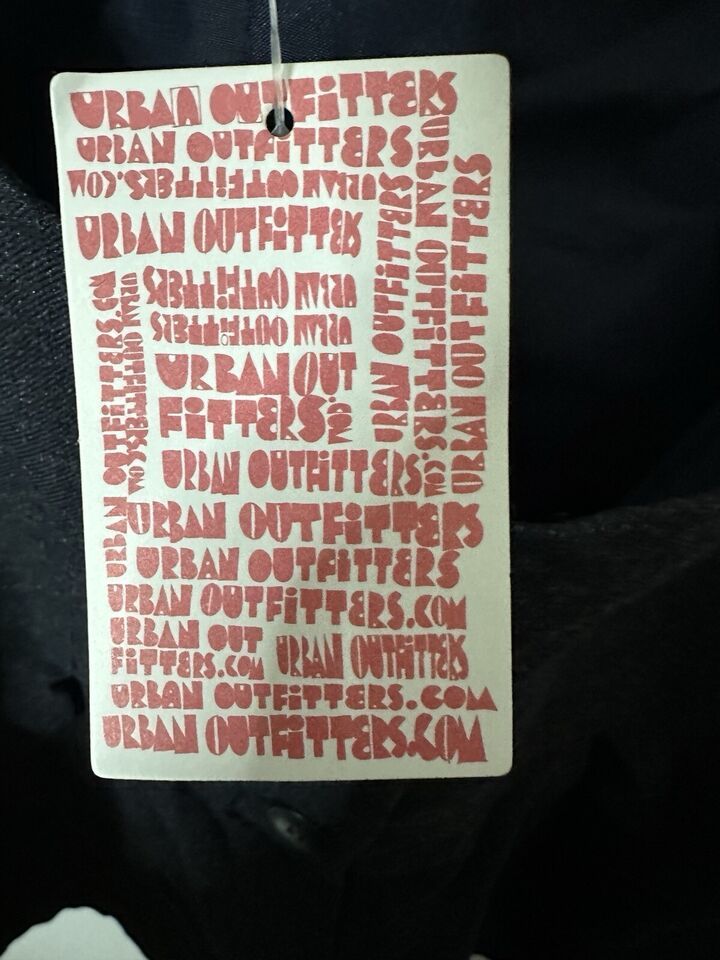 URBAN OUTFITTERS
URBAN OUTFITTERS
URBAN OUTFITTERS.COM
URBAN OUTFITTERS
URBAN OUTFITTERS
URBAN OUTFITTERS
URBAN OUT
FITTERS.COM
URBAN OUTFITTERS
URBAN OUTFITTERS.COM
URBAN OUTFITTERS
URBAN OUTFITTERS.COM
URBAN OUTFITTERS.COM
URBAN OUTFITTERS
URBAN OUTFITTERS
URBAN OUTFITTERS
URBAN OUTFITTERS.COM
URBAN OUT
FITTERS.COM
URBAN OUTFITTERS
URBAN OUTFITTERS.COM
URBAN OUTFITTERS.COM